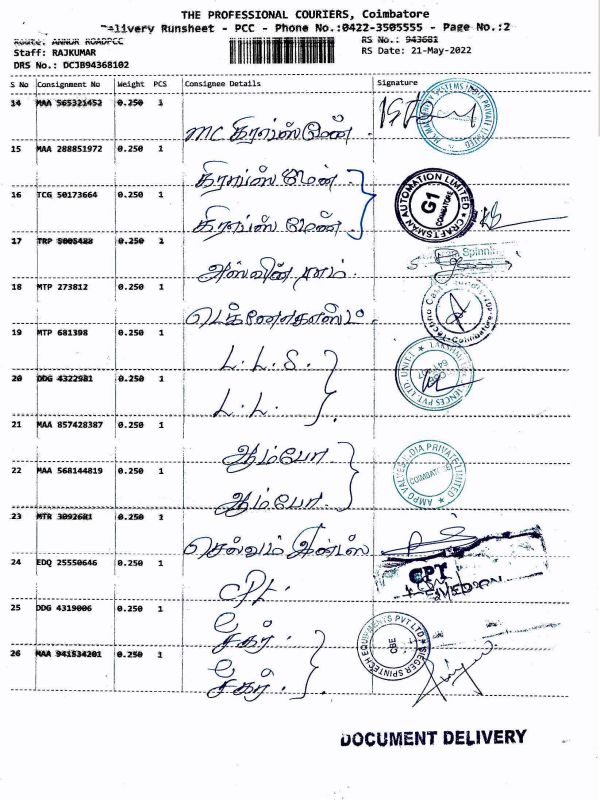 THE PROFESSIONAL COURIERS, Coimbatore
Delivery Runsheet - PCC - Phone No.:0422-3505555 - Page No.:2
Route: ANNUR ROADPCC RS No.: 943681
Staff: RAJKUMAR RS Date: 21-May-2022
DRS No.: DCJB94368102
S No Consignment No Weight PCS Consignee Details Signature
14 MAA 565321452 0.250 1
MC கிராப்ஸ்மேன்.
15 MAA 288851972 0.250 1
கிராப்ஸ் மேன்.
16 TCG 50173664 0.250 1
கிராப்ஸ் மேன்.
CRAFTSMAN AUTOMATION LIMITED
G1
COIMBATORE
17 TRP 5005488 0.250 1
Spinning
18 MTP 273812 0.250 1
19 MTP 681398 0.250 1
L.L.S.
20 DDG 4322981 0.250 1
L.L.
21 MAA 857428387 0.250 1
ஆம்போ
22 MAA 568144819 0.250 1
ஆம்போ.
AMPO VALVES INDIA PRIVATE LIMITED
COIMBATORE
23 MTR 3092681 0.250 1
24 EDQ 25550646 0.250 1
CPT.
CPT
25 DDG 4319006 0.250 1
26 MAA 941534201 0.250 1
SIEGER SPINTECH EQUIPMENTS PVT LTD
CBE
DOCUMENT DELIVERY